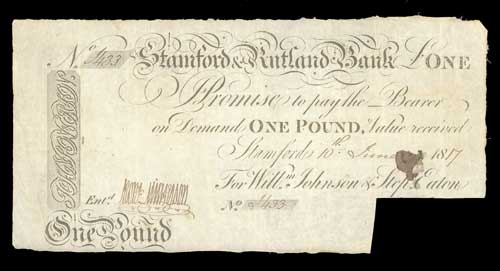 No. Stamford & Rutland Bank £ ONE
I Promise to pay the Bearer
on Demand ONE POUND, Value received
Stamford 10th. June 1817
For Willm. Johnson & Stepn. Eaton
Entd.
No.
One Pound